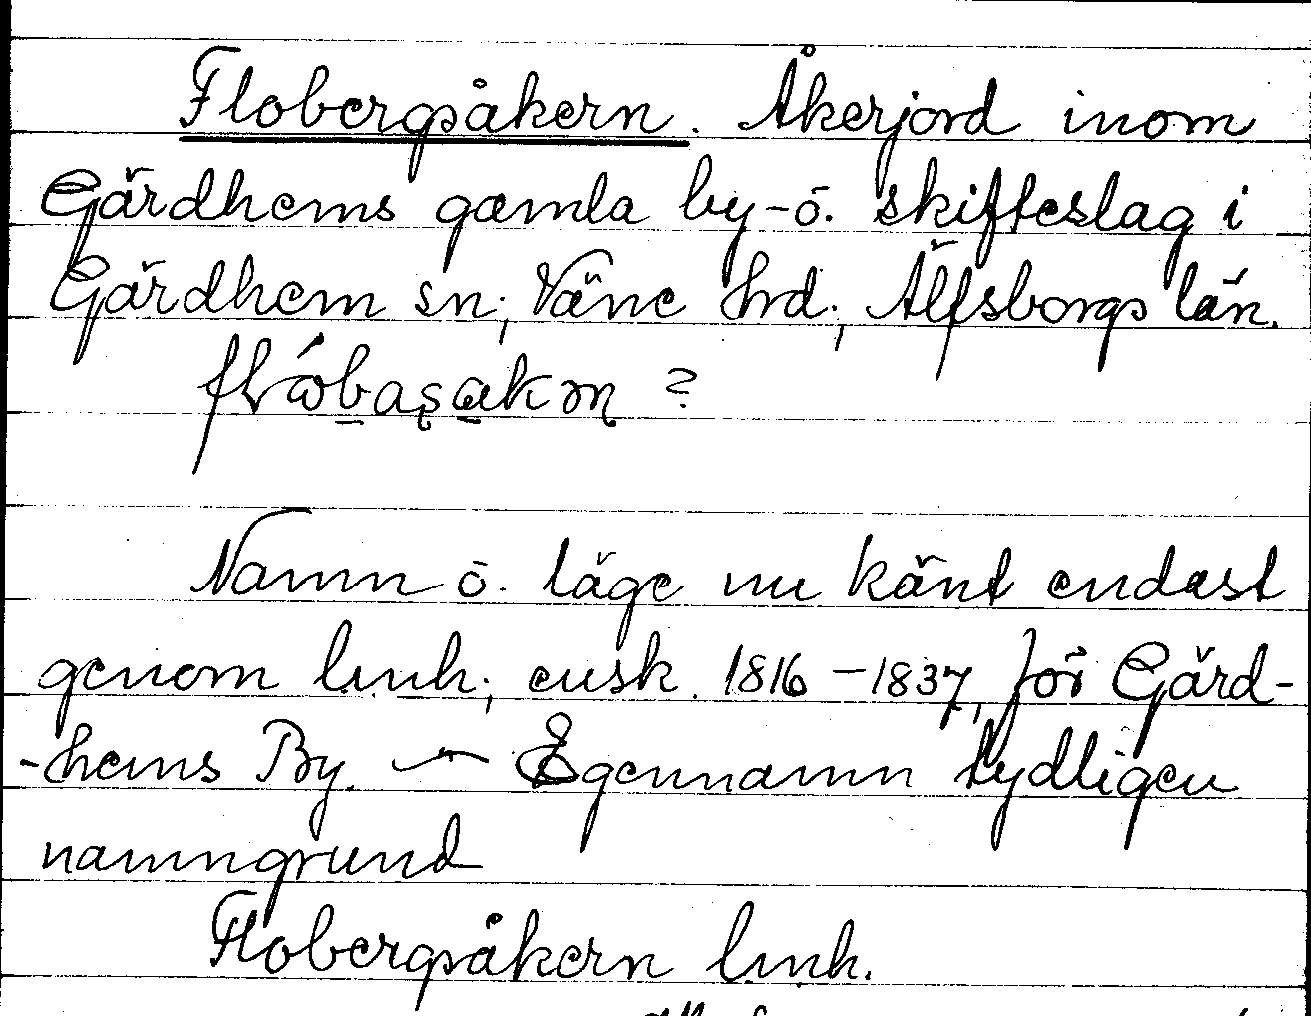 Flobergsåkern. Åkerjord inom
Gärdhems gamla by- o. skifteslag i
Gärdhem sn; Väne hrd; Älfsborgs län.
Namn o. läge nu känt endast
genom lmh; ensk. 1816–1837, för Gärd-
-hems By. — Egennamn tydligen
namngrund
Flobergsåkern lmh.